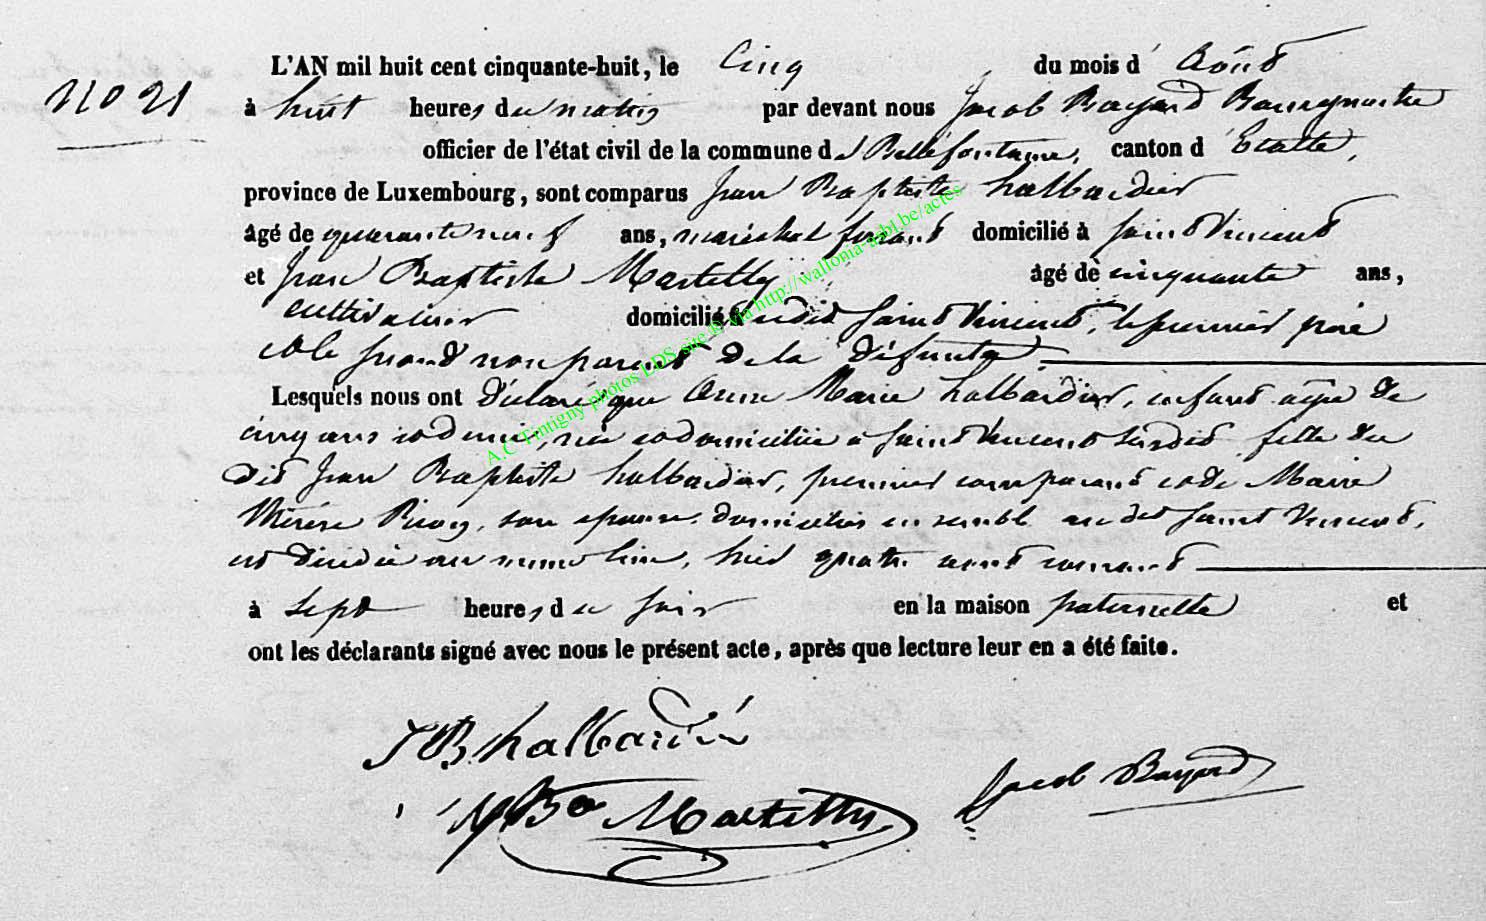 No 21
L'AN mil huit cent cinquante-huit, le Cinq du mois d' Août
à huit heures du matin par devant nous Jacob Bayard Bourgmestre
officier de l'état civil de la commune de Bellefontaine, canton d'Etalle,
province de Luxembourg, sont comparus Jean Baptiste halbardier
âgé de quarante neuf ans, maréchal ferrant domicilié à Saint Vincent
et Jean Baptiste Martilly âgé de cinquante ans,
cultivateur domicilié audit Saint Vincent, le premier père
et le second non parent de la défunte
Lesquels nous ont déclaré que Anne Marie halbardier, enfant agée de
cinq ans et demie, née et domiciliée à Saint Vincent susdit fille du
dit Jean Baptiste halbardier, premier comparant et de Marie
Thérèse son épouse domiciliés ensembl audit Saint Vincent,
est décédée au même lieu, hier quatre août courant
à sept heures du soir en la maison paternelle et
ont les déclarants signé avec nous le présent acte, après que lecture leur en a été faite.
JB halbardier
JBte Martilly
Jacob Bayard
A.C Tintigny photos LDS site © via http://wallonia-asbl.be/actes